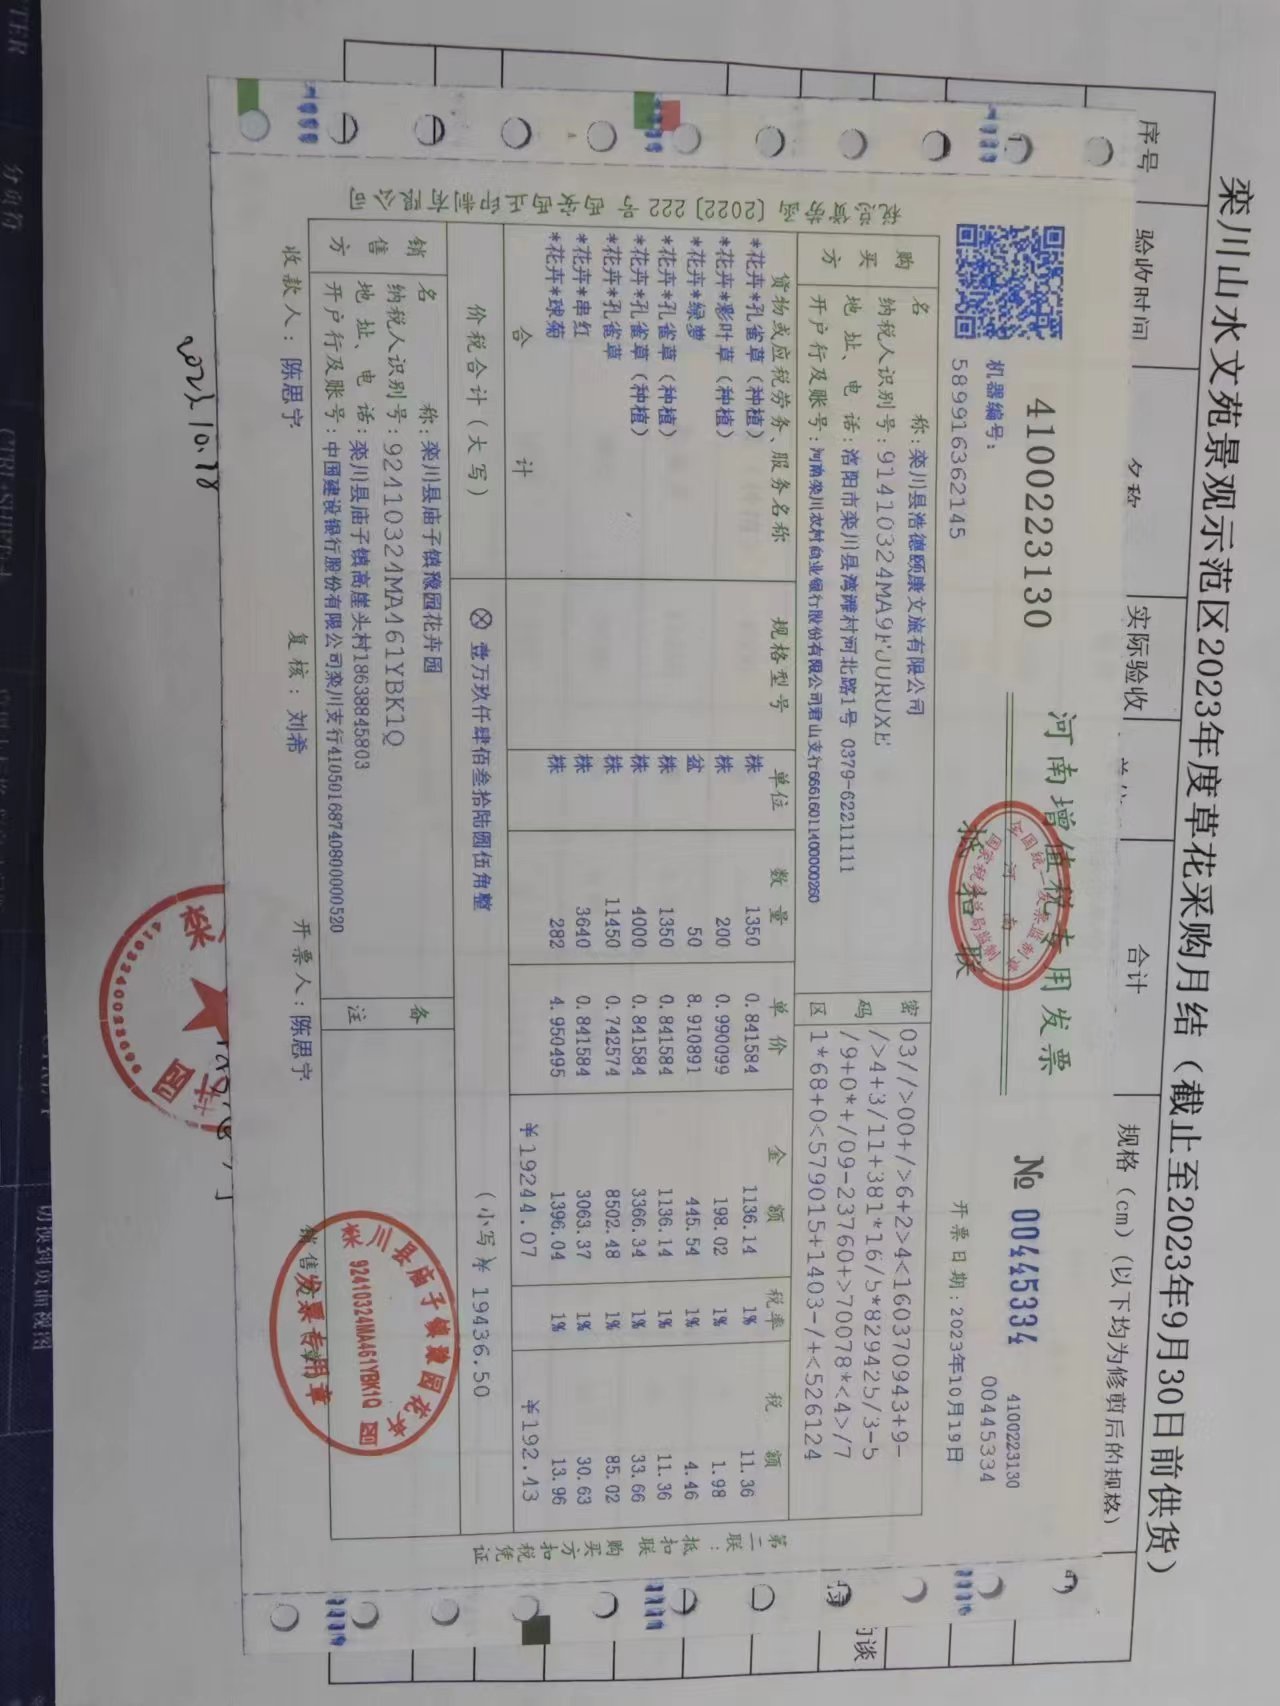 栾川山水文苑景观示范区2023年度草花采购月结（截止至2023年9月30日前供货）
序号 验收时间 名称 实际验收 合计 规格（cm）（以下均为修剪后的规格）
4100223130 河南增值税专用发票 № 00445334
4100223130
00445334
抵扣联
机器编号：
589916362145
开票日期：2023年10月19日
购买方
名 称：栾川县浩德颐康文旅有限公司
纳税人识别号：91410324MA9FJURUXE
地 址、电 话：洛阳市栾川县湾滩村河北路1号 0379-62211111
开户行及账号：河南栾川农村商业银行股份有限公司君山支行66616011400000260
密码区
03//>00+/>6+2>4<160370943+9-
/>4+3/11+381*16/5*829425/3-5
/9+0*+/09-23760+>70078*<4>/7
1*68+0<579015+1403-/+<526124
货物或应税劳务、服务名称 规格型号 单位 数量 单价 金额 税率 税额
*花卉*孔雀草（种植） 株 1350 0.841584 1136.14 1% 11.36
*花卉*彩叶草（种植） 株 200 0.990099 198.02 1% 1.98
*花卉*绿萝 盆 50 8.910891 445.54 1% 4.46
*花卉*孔雀草（种植） 株 1350 0.841584 1136.14 1% 11.36
*花卉*孔雀草（种植） 株 4000 0.841584 3366.34 1% 33.66
*花卉*孔雀草 株 11450 0.742574 8502.48 1% 85.02
*花卉*串红 株 3640 0.841584 3063.37 1% 30.63
*花卉*球菊 株 282 4.950495 1396.04 1% 13.96
合 计 ￥19244.07 ￥192.43
价税合计（大写） ⊗ 壹万玖仟肆佰叁拾陆圆伍角整 （小写）￥19436.50
销售方
名 称：栾川县庙子镇豫园花卉园
纳税人识别号：92410324MA461YBK1Q
地 址、电 话：栾川县庙子镇高崖头村18638845803
开户行及账号：中国建设银行股份有限公司栾川支行41050168740800000520
备注
收款人：陈思宇 复核：刘希 开票人：陈思宇
栾川县庙子镇豫园花卉园
92410324MA461YBK1Q
发票专用章
第二联：抵扣联 购买方扣税凭证